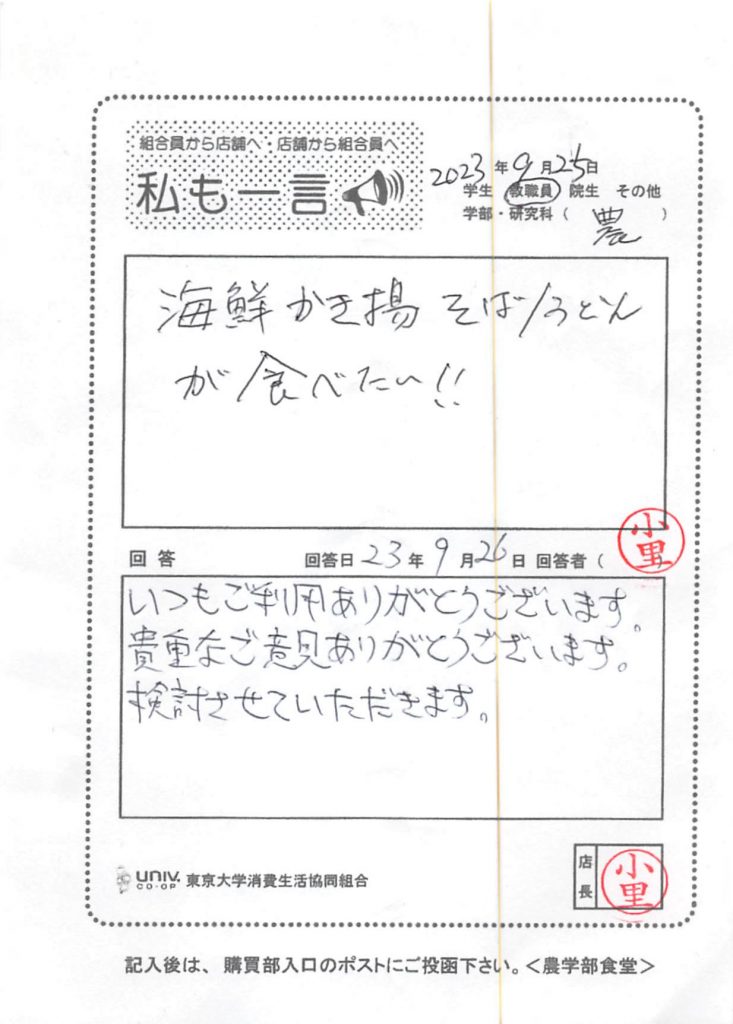 組合員から店舗へ・店舗から組合員へ
私も一言
2023年9月25日
学生 教職員 院生 その他
学部・研究科（ 農 ）
海鮮かき揚そば/うどん
が食べたい!!
回答 回答日 23年9月26日 回答者（ 小里
いつもご利用ありがとうございます。
貴重なご意見ありがとうございます。
検討させていただきます。
UNIV. CO-OP 東京大学消費生活協同組合
店長 小里
記入後は、購買部入口のポストにご投函下さい。＜農学部食堂＞